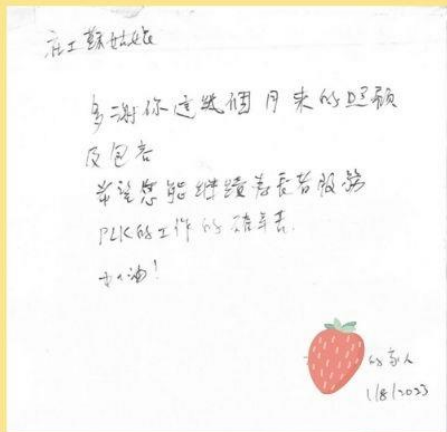 社工蘇姑娘
多謝你這幾個月來的照顧
及包容
希望您能繼續為長者服務
PLK的工作的
加油!
的家人
1/8/2023